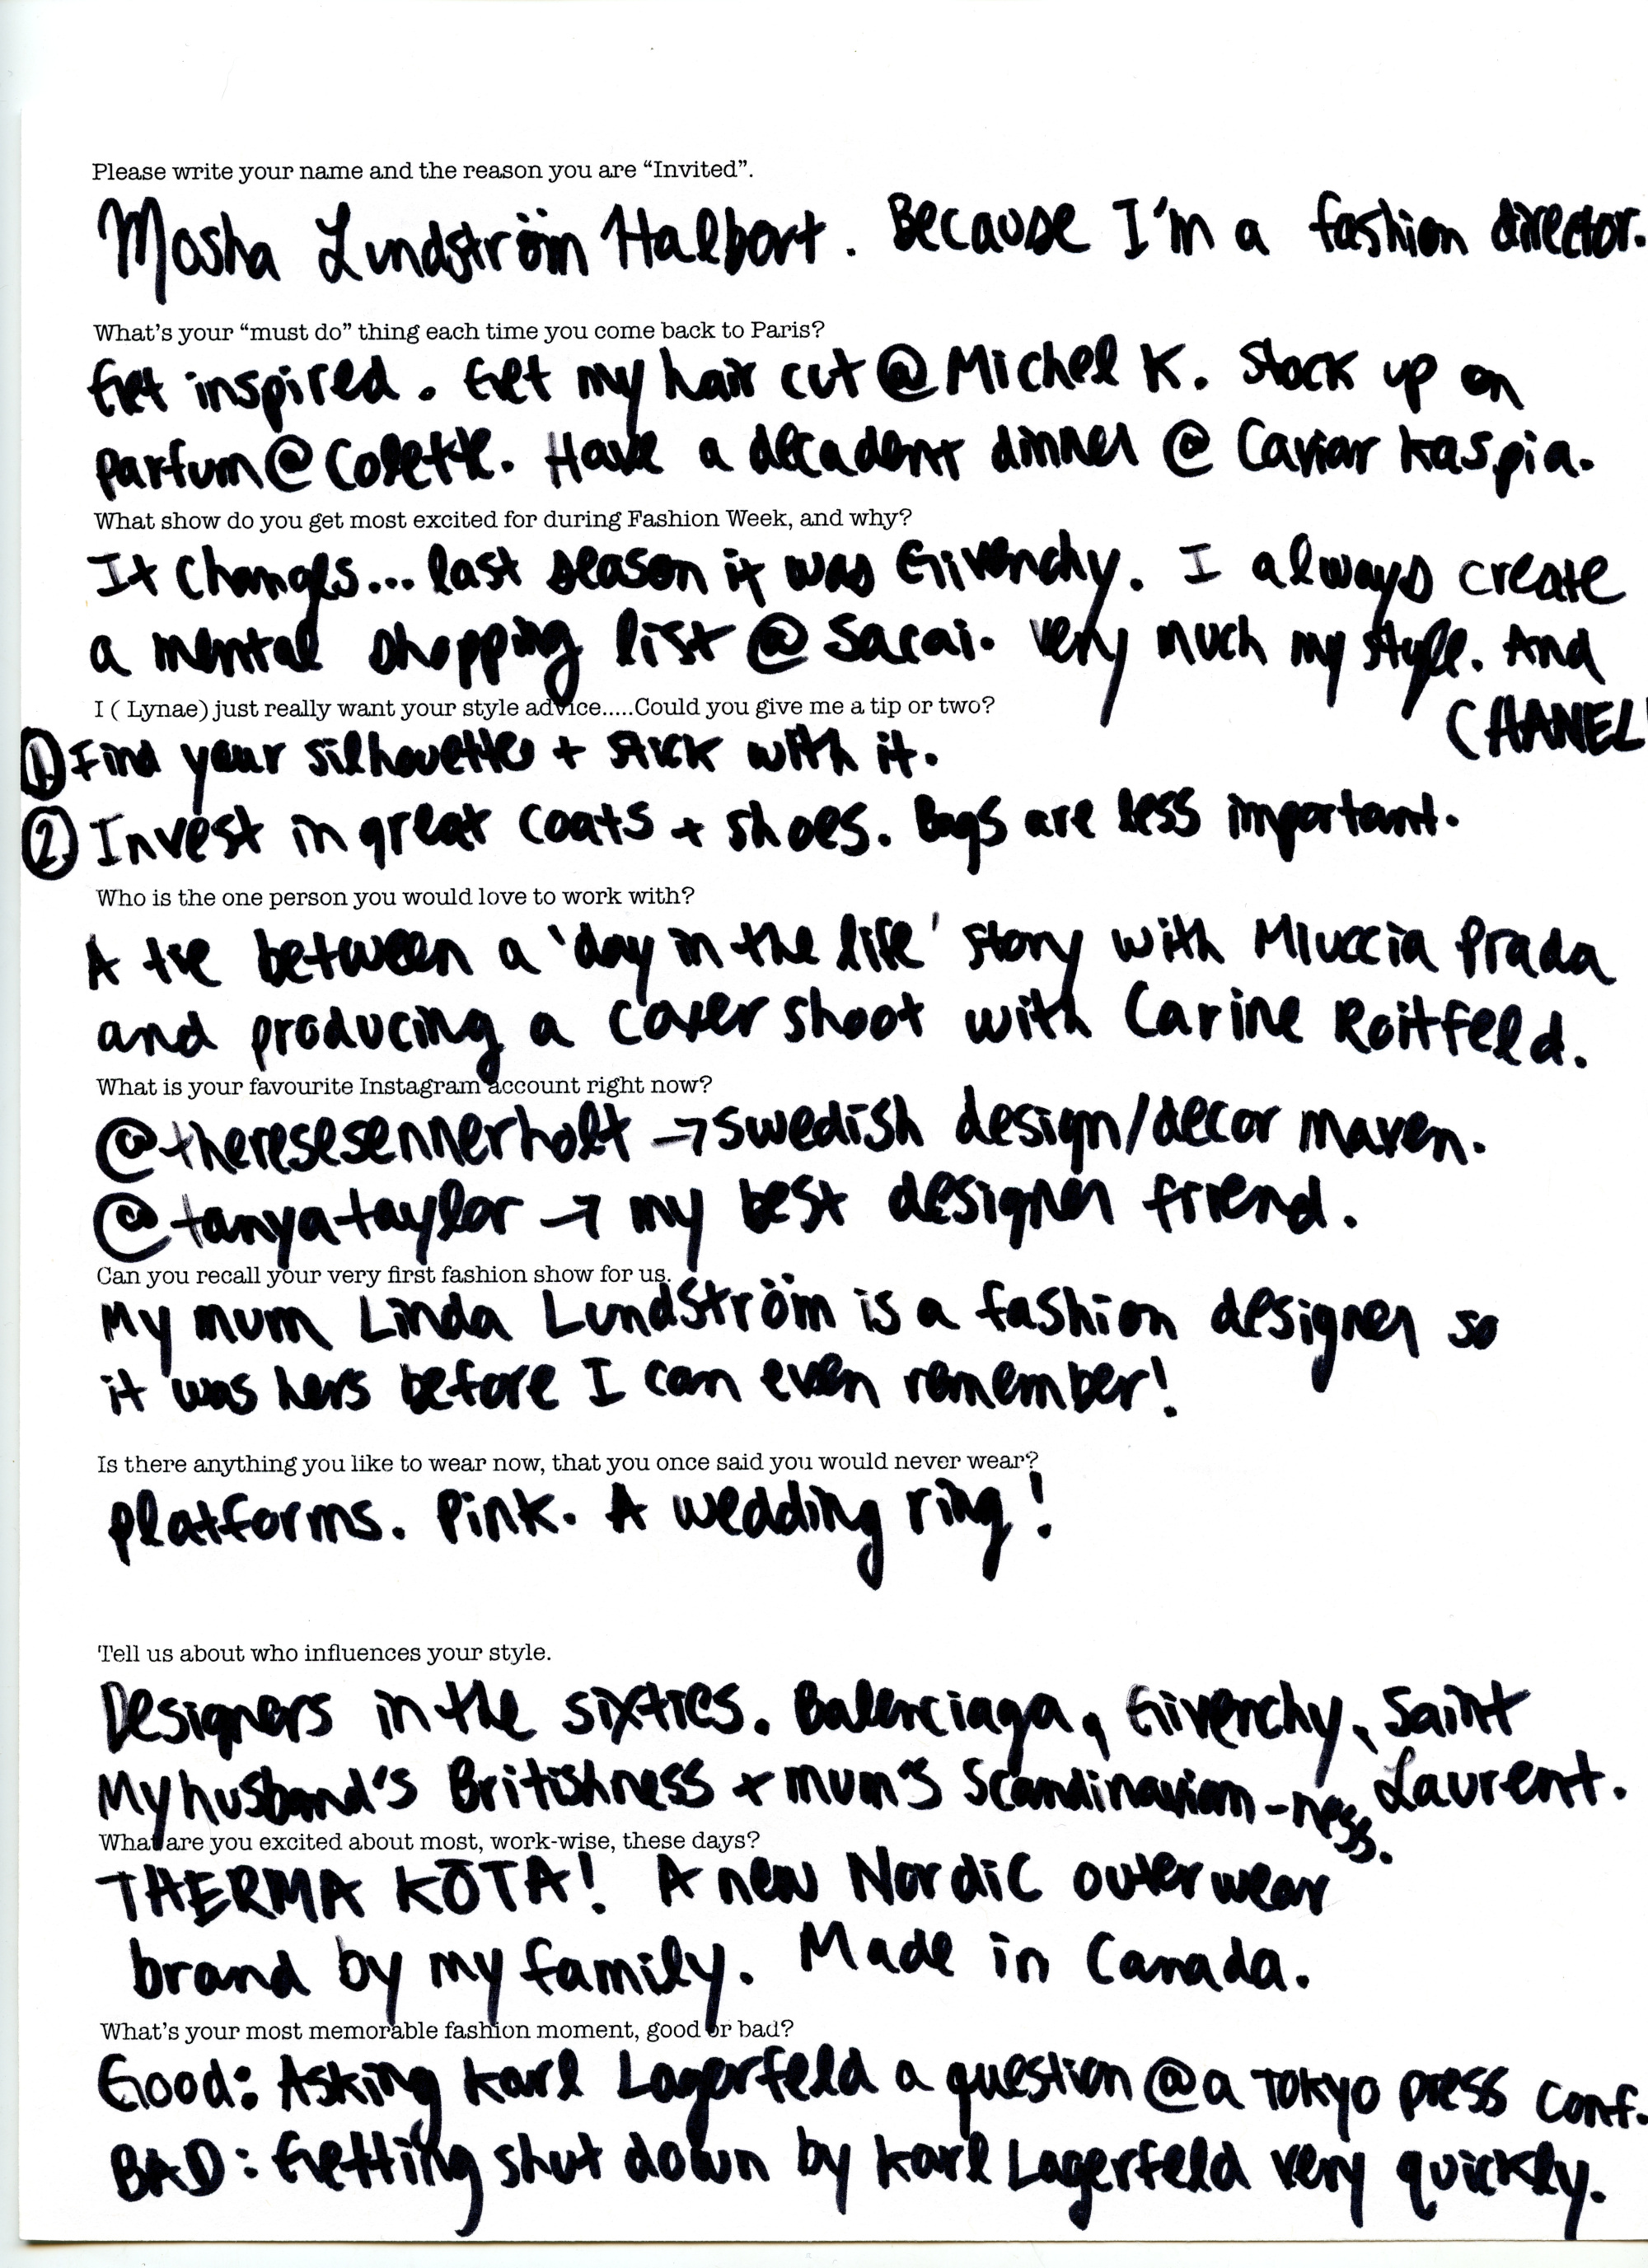 Please write your name and the reason you are “Invited”.
Mosha Lundström Halbort. Because I'm a fashion director.
What's your “must do” thing each time you come back to Paris?
Get inspired. Get my hair cut @ Michel K. Stock up on
parfum @ Colette. Have a decadent dinner @ Caviar Kaspia.
What show do you get most excited for during Fashion Week, and why?
It changes... last season it was Givenchy. I always create
a mental shopping list @ Sacai. Very much my style. And
CHANEL!
I ( Lynae) just really want your style advice.....Could you give me a tip or two?
1. Find your silhouette + stick with it.
2. Invest in great coats + shoes. Bags are less important.
Who is the one person you would love to work with?
A tie between a 'day in the life' story with Miuccia Prada
and producing a cover shoot with Carine Roitfeld.
What is your favourite Instagram account right now?
@theresesennerholt → swedish design/decor maven.
@tanyataylor → my best designer friend.
Can you recall your very first fashion show for us.
My mum Linda Lundström is a fashion designer so
it was hers before I can even remember!
Is there anything you like to wear now, that you once said you would never wear?
Platforms. Pink. A wedding ring!
Tell us about who influences your style.
Designers in the sixties. Balenciaga, Givenchy, Saint
Laurent.
My husband's Britishness + mum's Scandinavian-ness.
What are you excited about most, work-wise, these days?
THERMA KŌTA! A new Nordic outerwear
brand by my family. Made in Canada.
What's your most memorable fashion moment, good or bad?
Good: Asking Karl Lagerfeld a question @ a Tokyo press conf.
BAD: Getting shut down by Karl Lagerfeld very quickly.